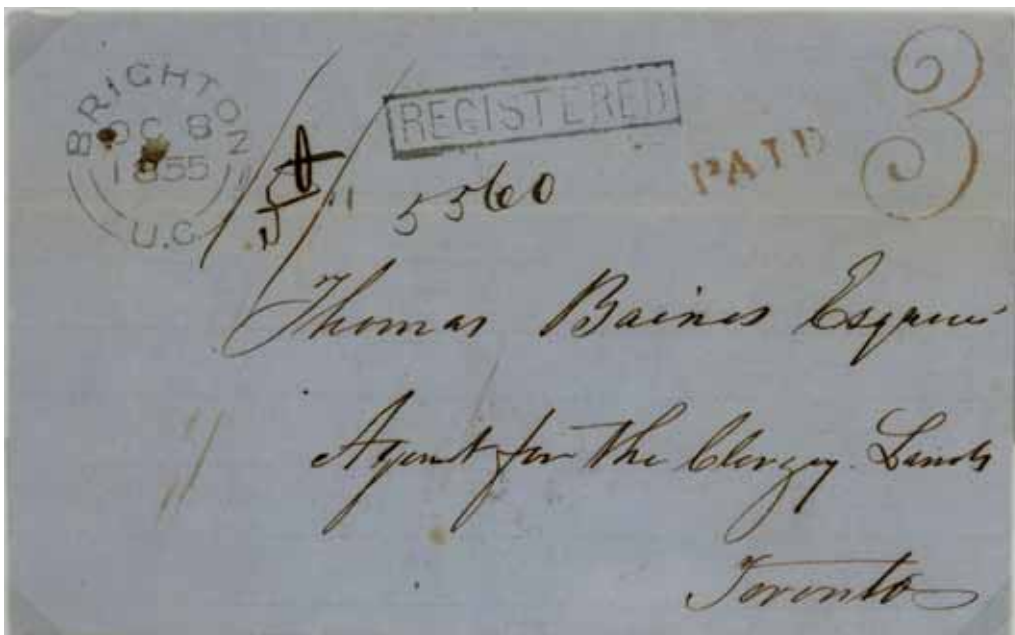 BRIGHTON
OC 8
1855
U.C.
REGISTERED
5560
PAID
3
Thomas Baines Esquire
Agent for the Clergy Lands
Toronto